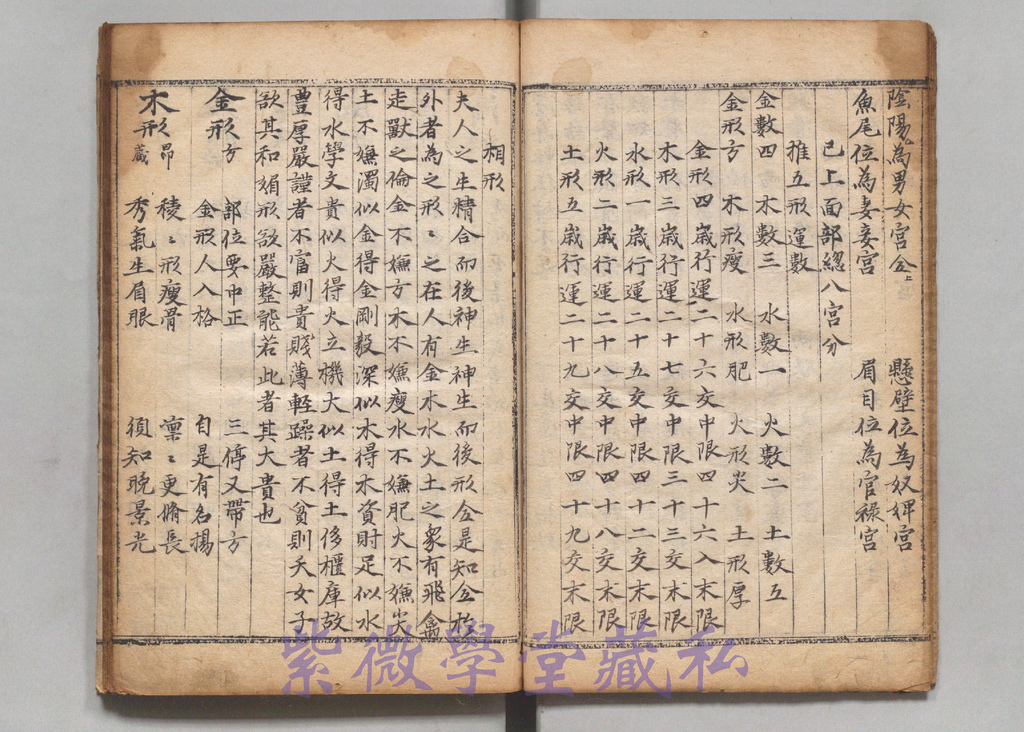 陰陽為男女宮仝上　懸壁位為奴婢宮
魚尾位為妻妾宮　眉目位為官祿宮
已上面部緫八宮分
推五形運數
金數四　木數三　水數一　火數二　土數五
金形方　木形瘦　水形肥　火形尖　土形厚
金形四嵗行運二十六交中限四十六入末限
木形三嵗行運二十七交中限三十三交末限
水形一嵗行運二十五交中限四十二交末限
火形二嵗行運二十八交中限四十八交末限
土形五嵗行運二十九交中限四十九交末限
相形
夫人之生精合而後神生神生而後形全是知全於
外者為之形〻之在人有金木水火土之象有飛禽
走獸之倫金不嫌方木不嫌瘦水不嫌肥火不嫌尖
土不嫌濁似金得金剛毅深似木得木資財足似水
得水學文貴似火得火立機大似土得土侈櫃庫故
豊厚嚴謹者不富則貴賤薄輕躁者不貧則夭女子
欲其和媚形欲嚴整能若此者其大貴也
金形方　部位要中正　三停又帶方
金形人入格　自是有名揚
木形昂藏　稜〻形瘦骨　凜〻更脩長
秀氣生眉眼　須知晚景光
紫微學堂藏私